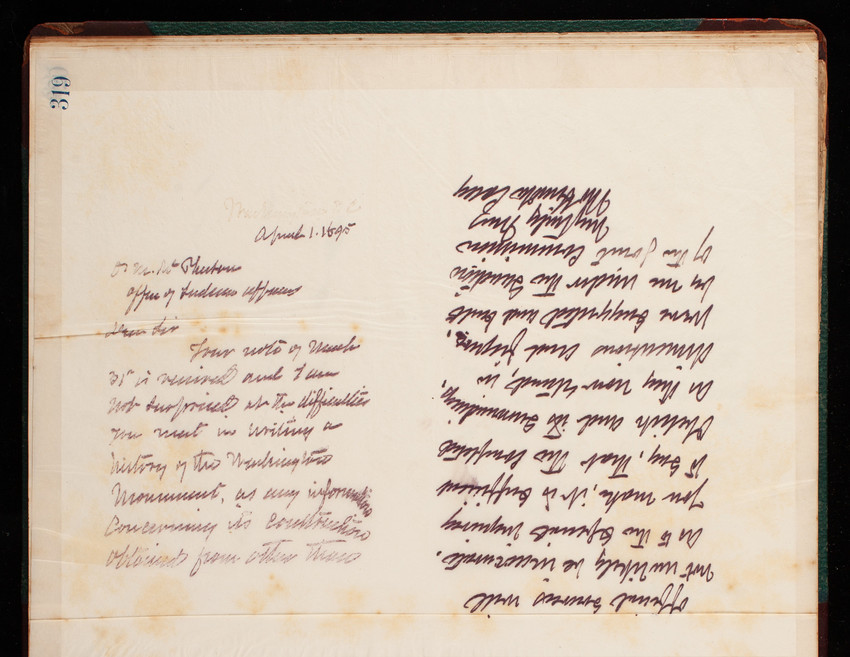 319
Washington, D.C.
April 1. 1895
Office of Indian Affairs
Dear Sir
Your note of March
31st is received and I am
not surprised at the difficulties
you meet in writing a
history of the Washington
Monument, as any information
concerning its construction
obtained from other than
official sources will
not unlikely be incorrect.
As to the special inquiry
you make, it is sufficient
to say, that the completed
Obelisk and its surroundings,
as they now stand, in
dimensions and figure,
were suggested and built
by me under the direction
of the Joint Commission
Very truly yours
Thos Lincoln Casey